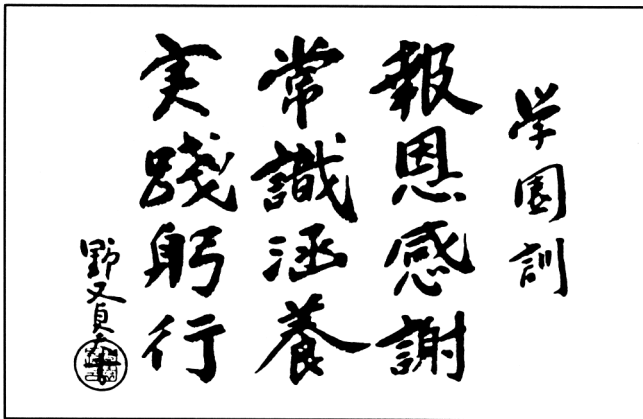 学園訓
報恩感謝
常識涵養
実踐躬行
野又貞夫